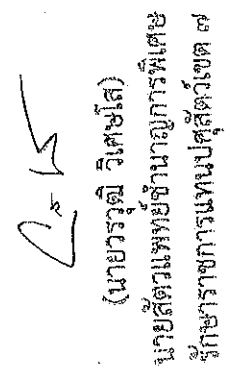 (นายวรวุฒิ วิเศษโส)
นายสัตวแพทย์ชำนาญการพิเศษ
รักษาราชการแทนปศุสัตว์เขต ๗